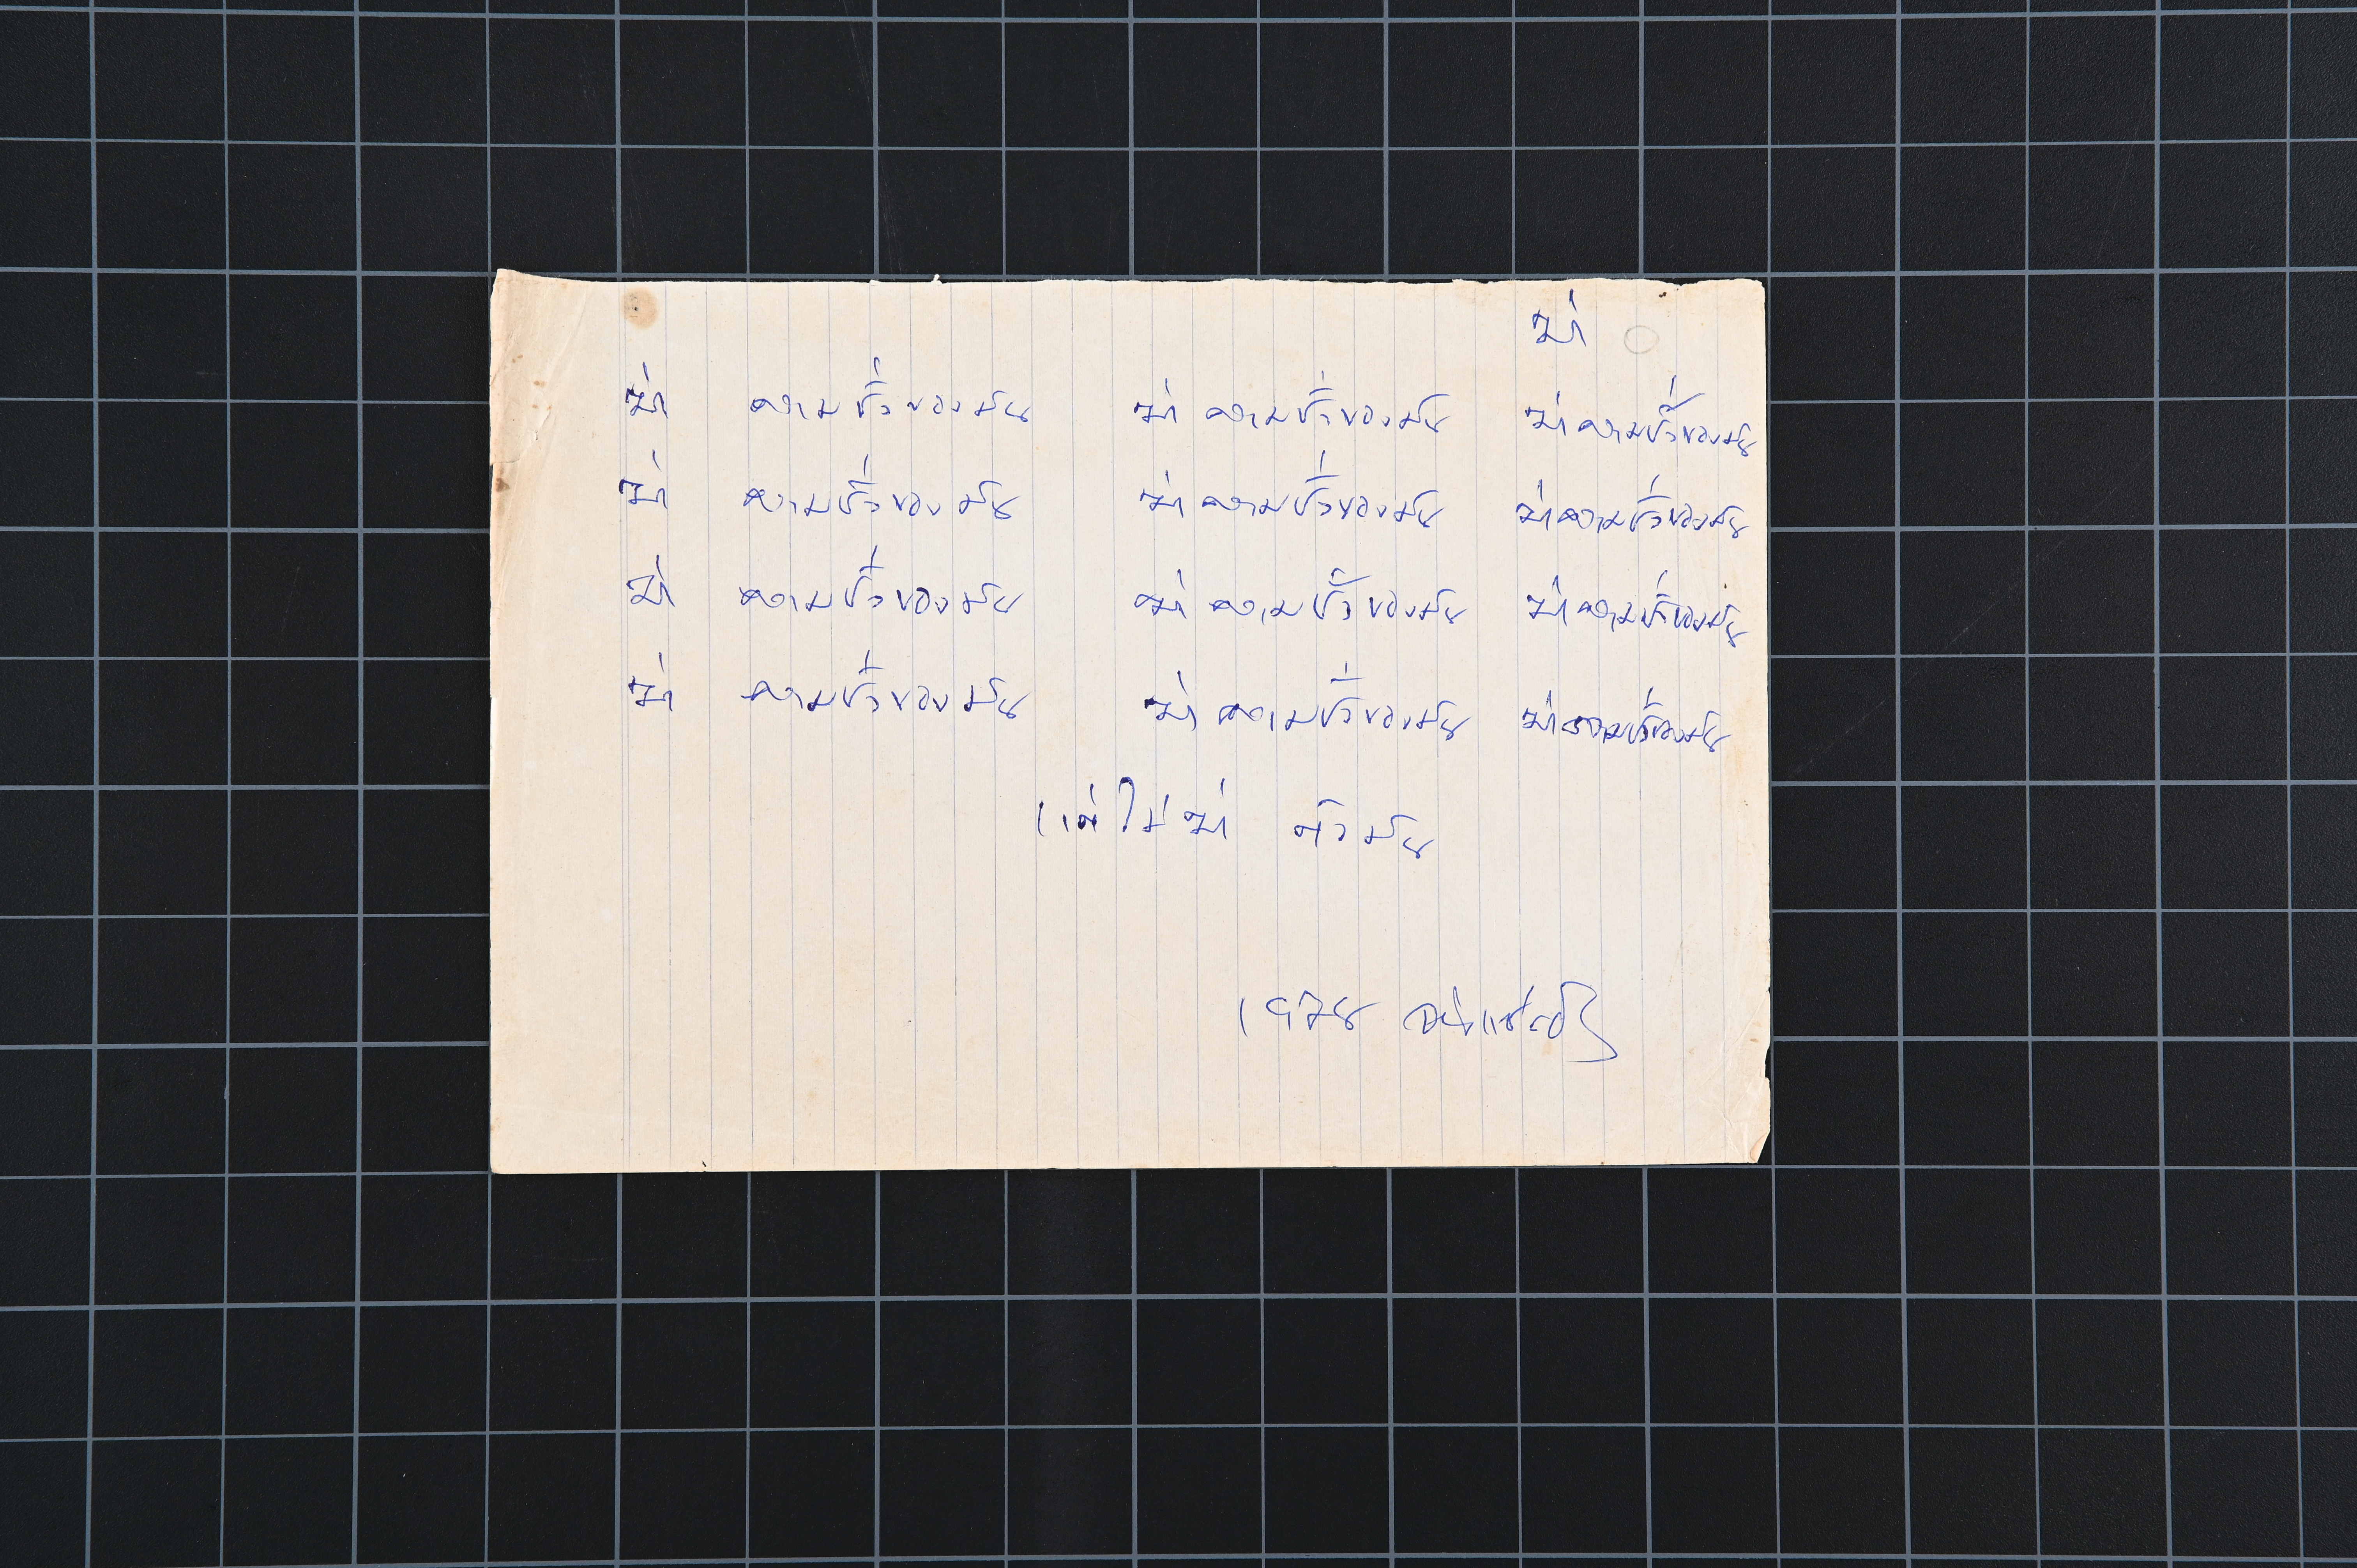 ฆ่า
ฆ่า ความชั่วของมัน ฆ่า ความชั่วของมัน ฆ่าความชั่วของมัน
ฆ่า ความชั่วของมัน ฆ่า ความชั่วของมัน ฆ่าความชั่วของมัน
ฆ่า ความชั่วของมัน ฆ่า ความชั่วของมัน ฆ่าความชั่วของมัน
ฆ่า ความชั่วของมัน ฆ่า ความชั่วของมัน ฆ่าความชั่วของมัน
แต่ไม่ฆ่า ตัวมัน
จ่างแซ่ตั้ง